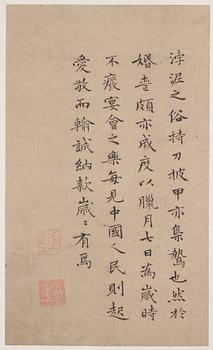 淳涅之俗持刀披甲亦集驁也然於
婚喪頗亦成度以臘月七日為歲時
不廢宴會之樂每見中國人民則起
愛敬而輸誠納款歲〻有焉